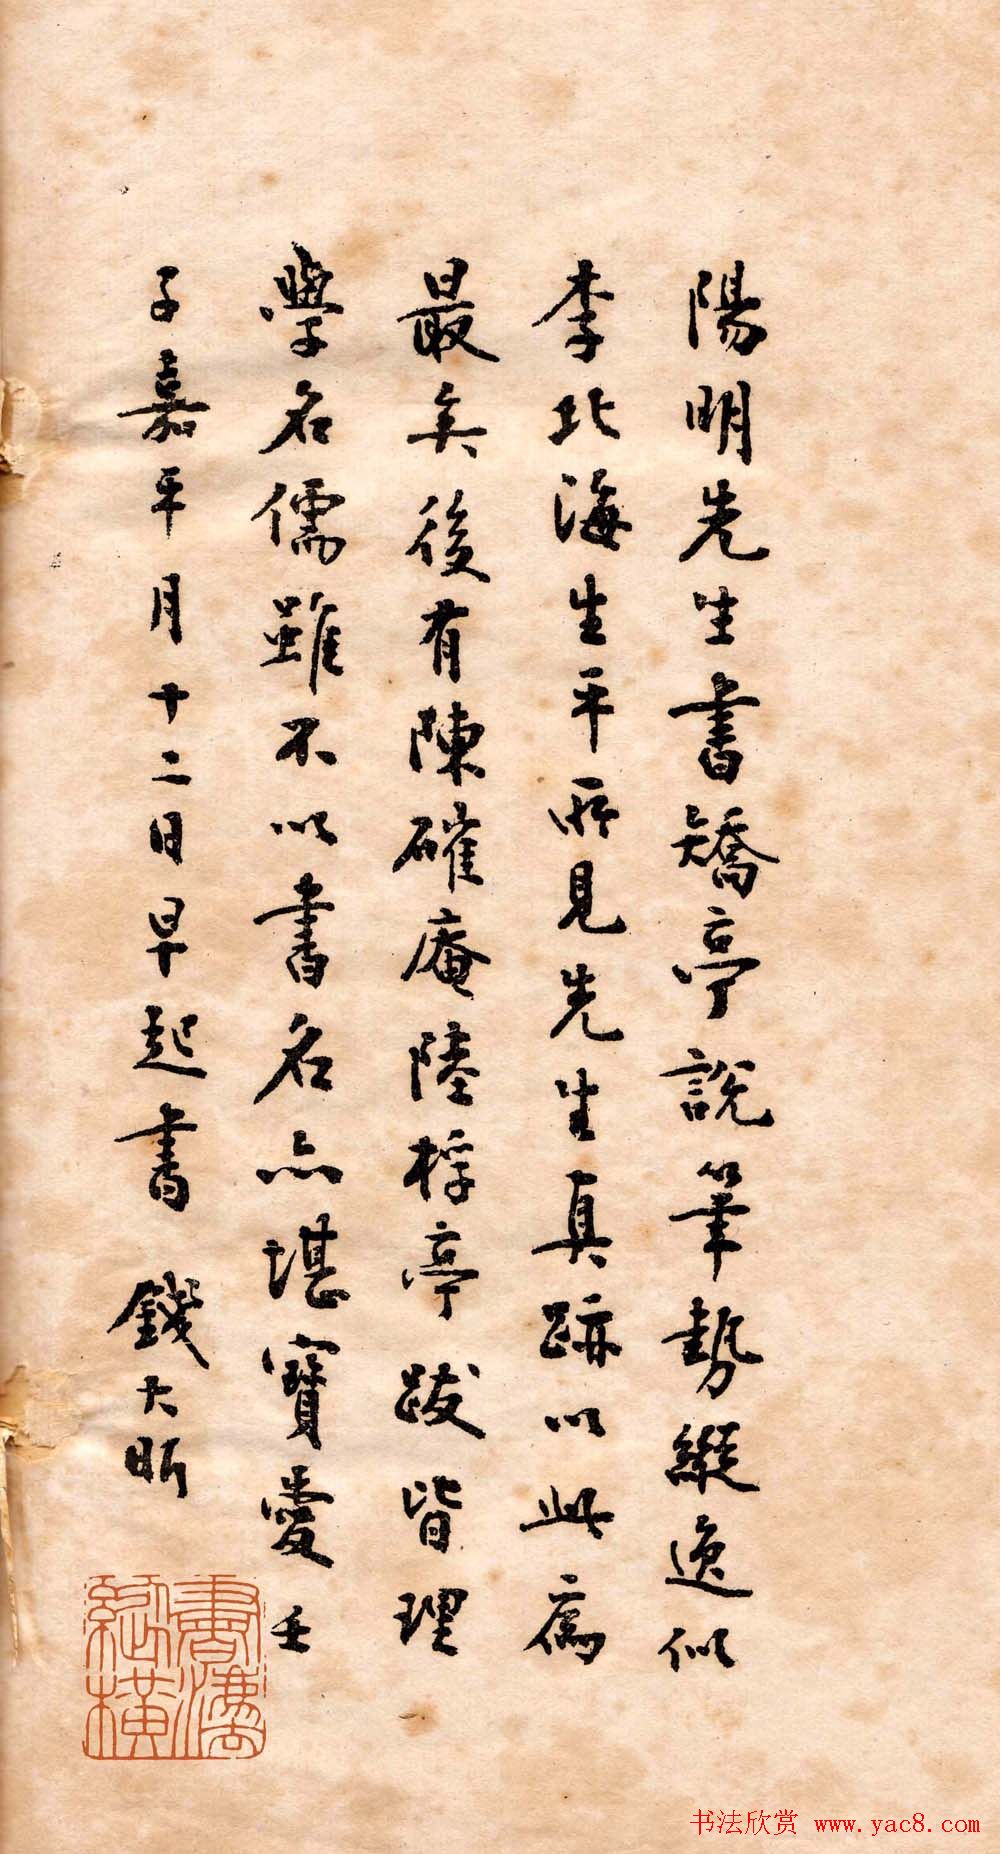 陽明先生書矯亭說筆勢縱逸似
李北海生平所見先生真跡以此為
最矣後有陳確庵陸桴亭跋皆理
學名儒雖不以書名亦堪寶愛壬
子嘉平月十二日早起書 錢大昕
書灋縱橫
书法欣赏 www.yac8.com